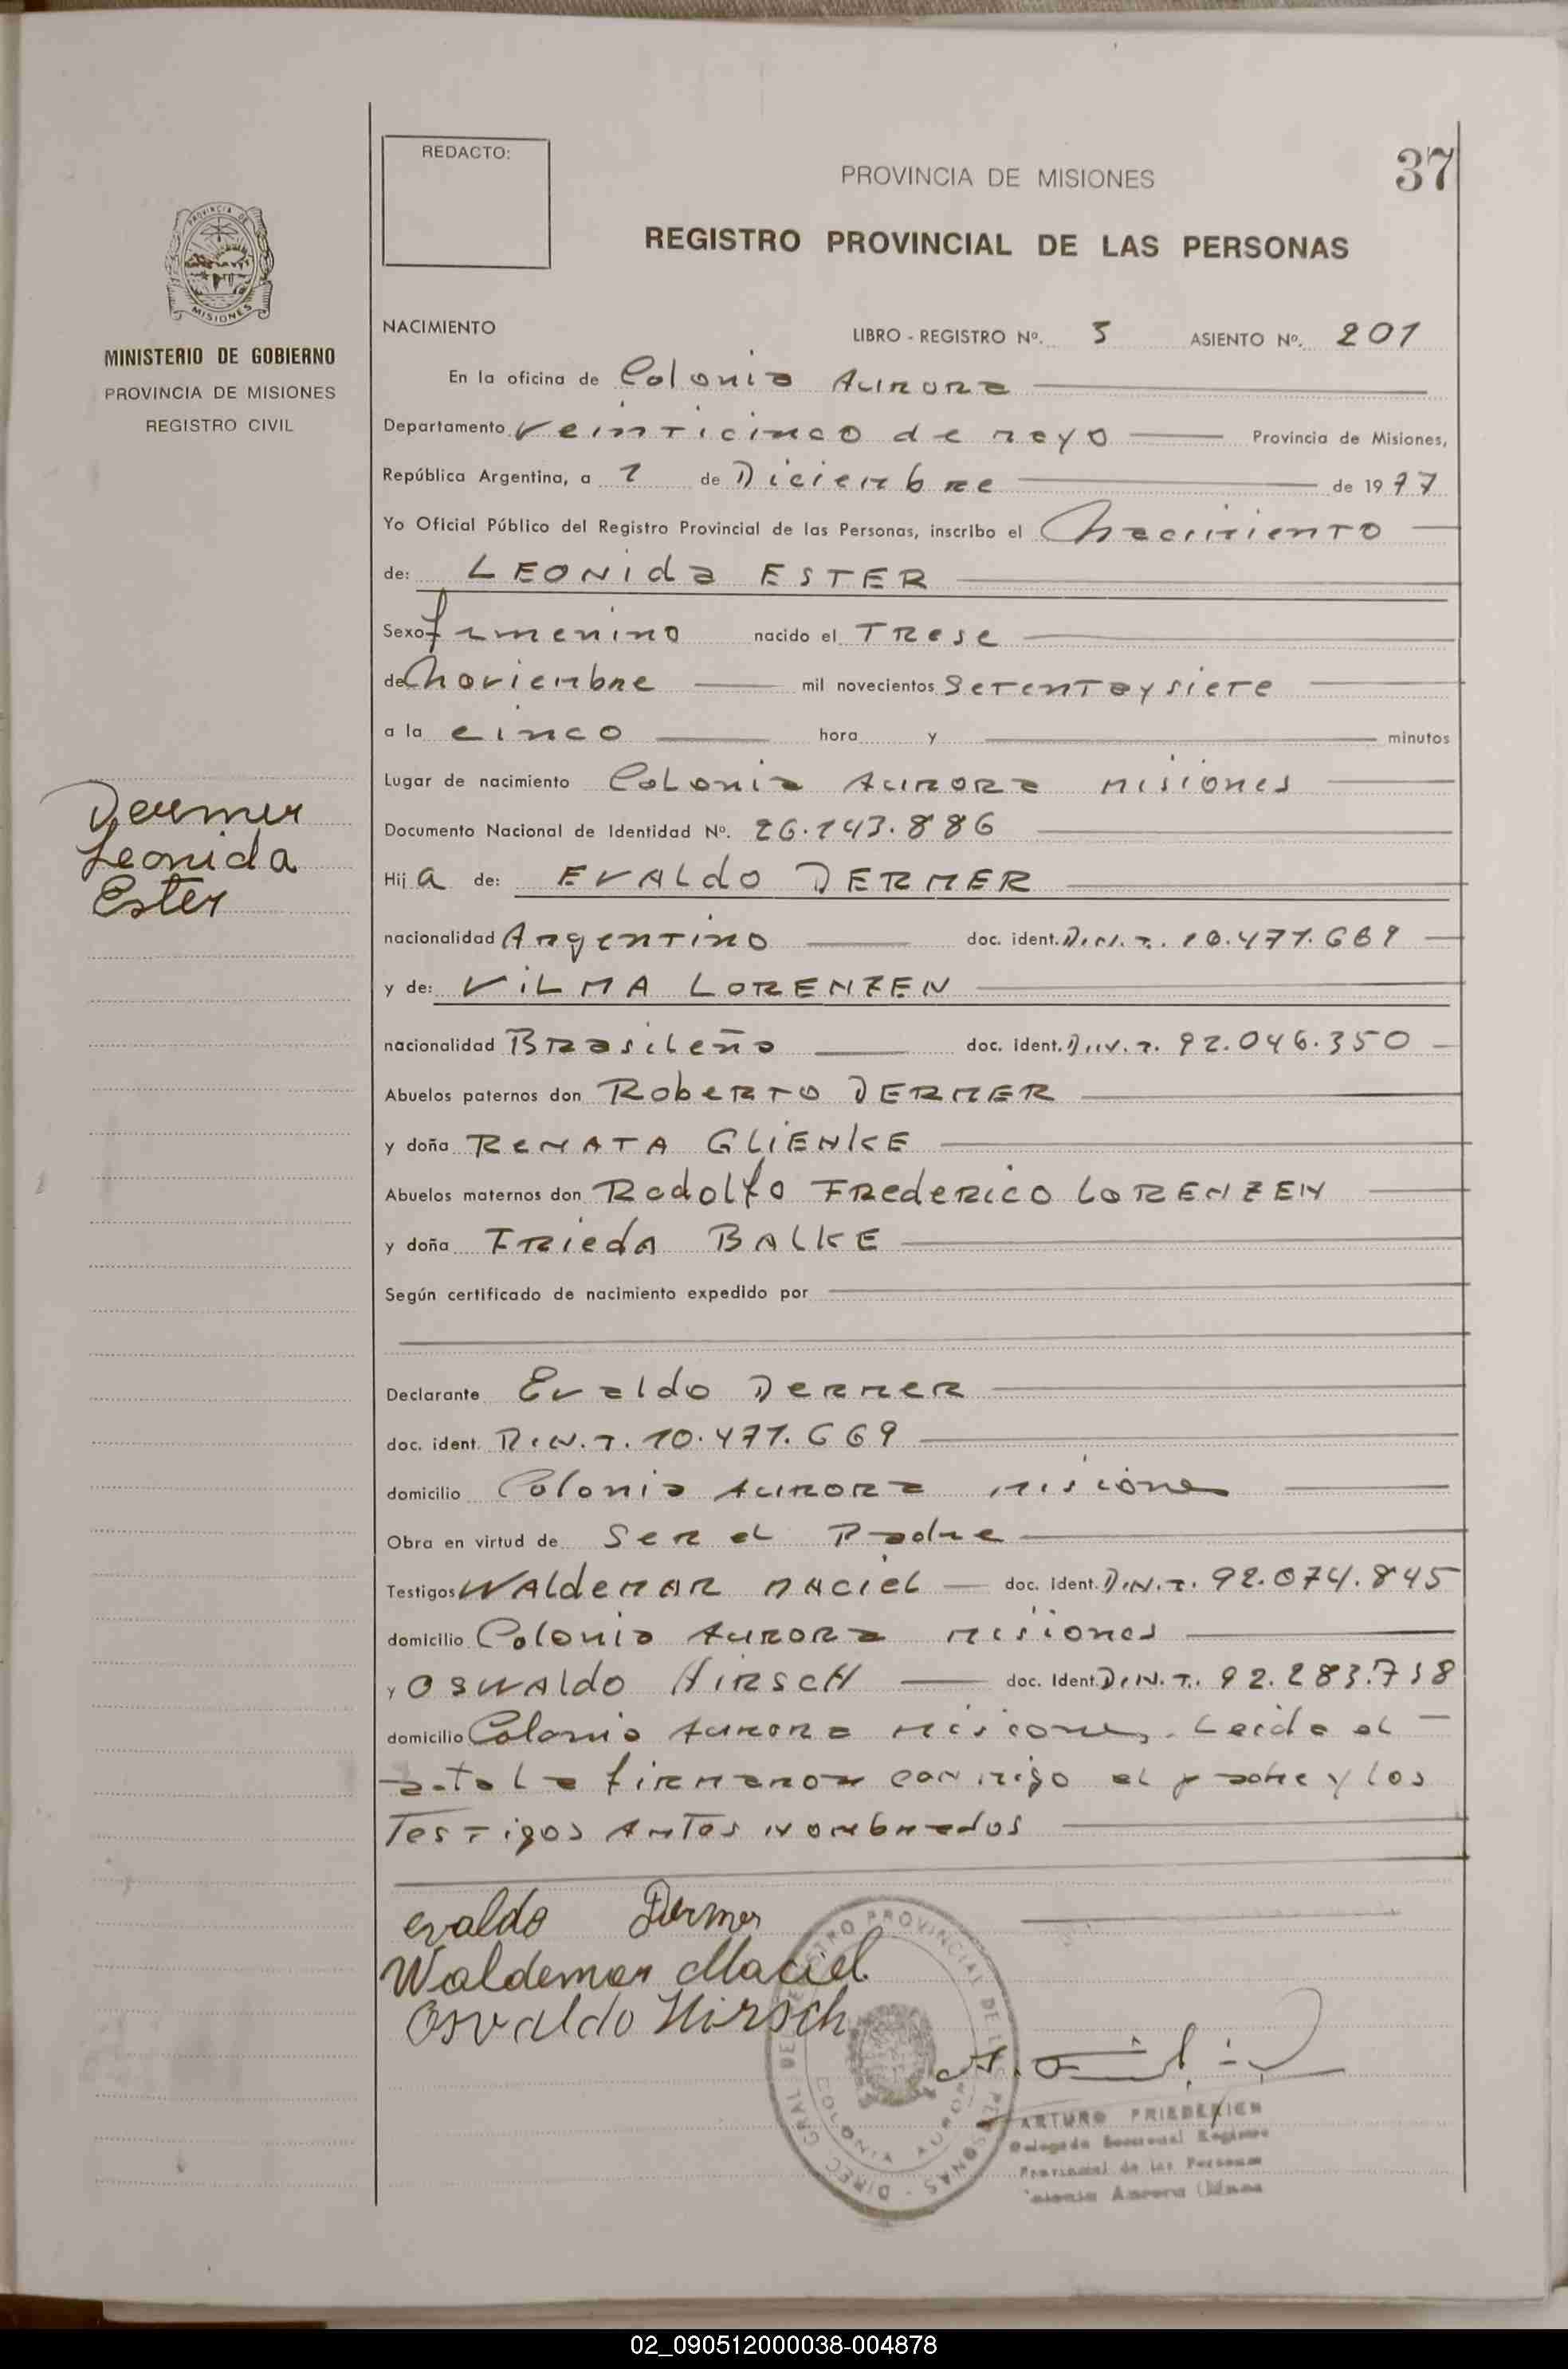 REDACTO:
PROVINCIA DE MISIONES
37
REGISTRO PROVINCIAL DE LAS PERSONAS
PROVINCIA DE
MISIONES
MINISTERIO DE GOBIERNO
PROVINCIA DE MISIONES
REGISTRO CIVIL
NACIMIENTO LIBRO - REGISTRO Nº. ASIENTO Nº. 201
En la oficina de Colonia Aurora
Departamento Veinticinco de mayo Provincia de Misiones,
República Argentina, a 1 de Diciembre de 1977
Yo Oficial Público del Registro Provincial de las Personas, inscribo el Nacimiento
de: LEONida ESTER
Sexo femenino nacido el Trese
de Noviembre mil novecientos Setentaysiete
a la cinco hora y minutos
Lugar de nacimiento Colonia Aurora misiones
Documento Nacional de Identidad Nº. 26.143.886
Hija de: EVALdo DERMER
Dermer
Leonida
Ester
nacionalidad Argentino doc. ident. D.N.I. 10.471.669
y de: ViLMA LORENZEN
nacionalidad Brasileña doc. ident. D.N.I. 92.046.350
Abuelos paternos don Roberto DERMER
y doña RENATA GLiENKE
Abuelos maternos don Rodolfo FRederico LORENZEN
y doña FRieda BALKE
Según certificado de nacimiento expedido por
Declarante Evaldo Dermer
doc. ident. D.N.I. 10.471.669
domicilio Colonia Aurora misiones
Obra en virtud de Ser el Padre
Testigos WALdemAR MACiel doc. Ident. D.N.I. 92.074.845
domicilio Colonia Aurora misiones
y OSWALdo HiRScH doc. Ident. D.N.I. 92.283.738
domicilio Colonia Aurora misiones. Leida el
acta la firmaron conmigo el padre y los
Testigos Antes Nombrados
evaldo Dermer
Waldemar Maciel
Osvaldo Hirsch
DIREC. GRAL. DE REGISTRO PROVINCIAL DE LAS PERSONAS
COLONIA AURORA
ARTURO FRIEDERICH
Delegado Seccional Registro
Provincial de las Personas
Colonia Aurora (Mnes
02_090512000038-004878